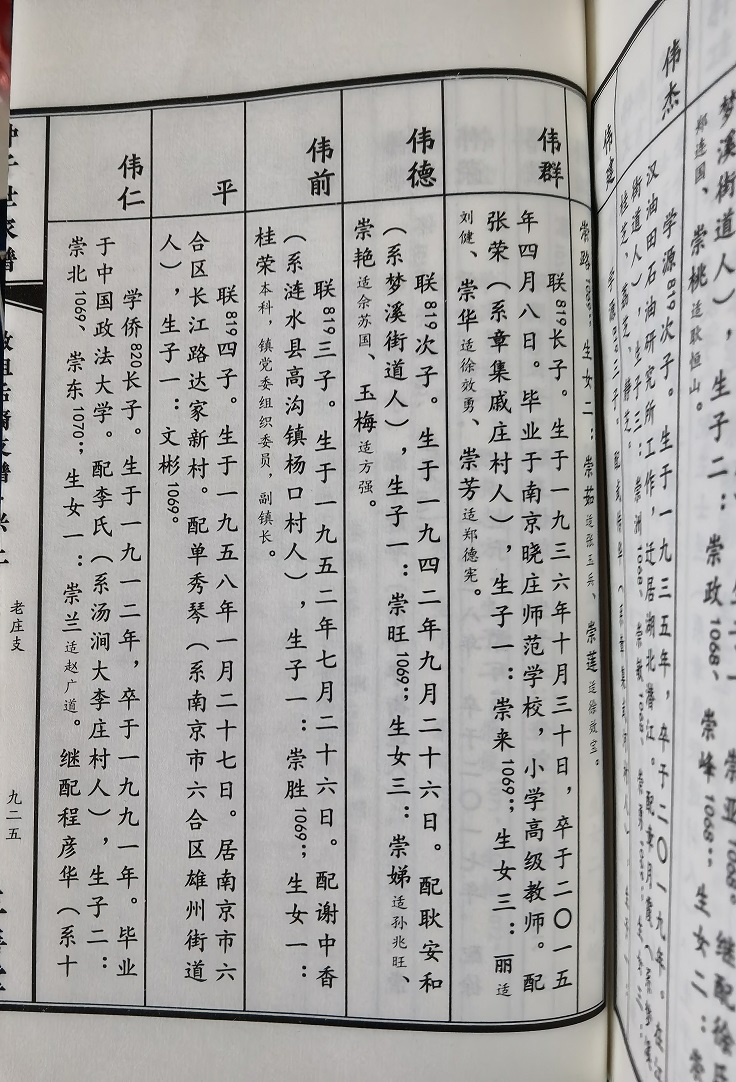 伟杰
学源819次子。生于一九三五年，卒于二〇一九年。在江
汉油田石油研究所工作，迁居湖北潜江。
街道人），生子三：崇洲1068、崇敏1068、
伟建
崇路1069；生女二：崇茹适张玉兵、崇莲适徐效宝。
伟群
联819长子。生于一九三六年十月三十日，卒于二〇一五
年四月八日。毕业于南京晓庄师范学校，小学高级教师。配
张荣（系章集戚庄村人），生子一：崇来1069；生女三：丽适
刘健、崇华适徐效勇、崇芳适郑德宪。
伟德
联819次子。生于一九四二年九月二十六日。配耿安和
（系梦溪街道人），生子一：崇旺1069；生女三：崇娣适孙兆旺、
崇艳适佘苏国、玉梅适方强。
伟前
联819三子。生于一九五二年七月二十六日。配谢中香
（系涟水县高沟镇杨口村人），生子一：崇胜1069；生女一：
桂荣本科，镇党委组织委员，副镇长。
平
联819四子。生于一九五八年一月二十七日。居南京市六
合区长江路达家新村。配单秀琴（系南京市六合区雄州街道
人），生子一：文彬1069。
伟仁
学侨820长子。生于一九一二年，卒于一九九一年。毕业
于中国政法大学。配李氏（系汤涧大李庄村人），生子二：
崇北1069、崇东1070；生女一：崇兰适赵广道。继配程彦华（系十
老庄支
九二五